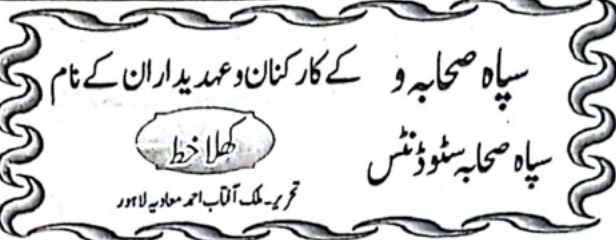 سپاہ صحابہ و کے کارکنان و عہدیداران کے نام
سپاہ صحابہ سٹوڈنٹس
کھلا خط
تحریر۔ ملک آفتاب احمد معاویہ لاہور